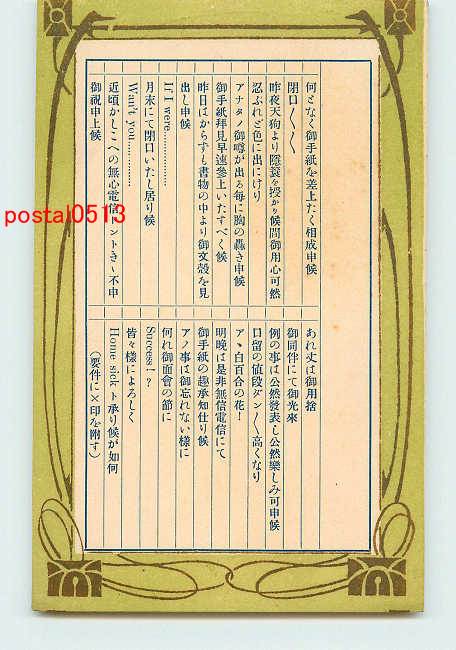 何となく御手紙を差上たく相成申候
閉口〱〱
昨夜天狗より隠蓑を授かり候間御用心可然
忍ぶれど色に出にけり
アナタノ御噂が出る毎に胸の轟き申候
御手紙拝見早速参上いたすべく候
昨日はからずも書物の中より御文殻を見
出し申候
If I were..................
月末にて閉口いたし居り候
Wan't you............
近頃かしこへの無心電信はントきゝ不申
御祝申上候
あれ丈は御用捨
御同伴にて御光來
例の事は公然發表し公然樂しみ可申候
口留の値段ダン〱高くなり
アヽ白百合の花!
明晩は是非無信電信にて
御手紙の趣承知仕り候
アノ事は御忘れない樣に
何れ御面會の節に
Success!?
皆々樣によろしく
Home sickト承り候が如何
(要件に×印を附す)
postal0513